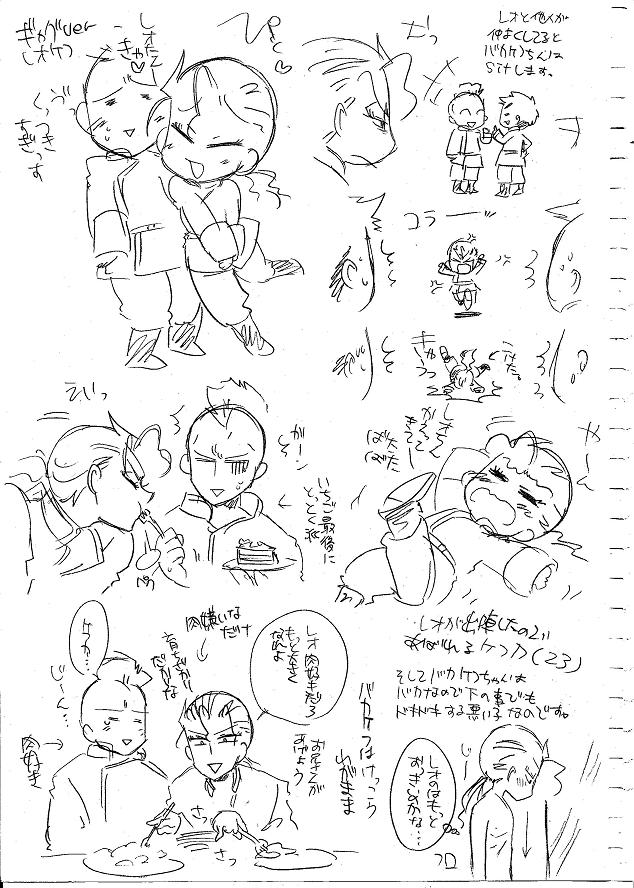 ギャグver
レオケフ
レオだてぎゃ♡
ぴと♡
うっ
くっつき
すぎっす
レオと他人が
仲よくしてると
バカケフちんは
sitします。
コラーッ
こけた。
ギャグっ
やーん
ばた
ばた
えいっ
がーン
いちご最後に
とっとく派
レオが出陣したので
あばれるケフカ(23)
そしてバカケフちゃんは
バカなので下の事でも
ドキドキする悪い子なのです。
肉嫌いなだけ
育ちざかり
だからな
レオ 肉好きだろ
もっと大きく
なれよ
お兄さんが
あげよう
バカケフはけっこう
わがまま
ケフカ…
じーん…
肉好き
さっ
さっ
じ
レオのはもっと
おっきいのかな…
フロ